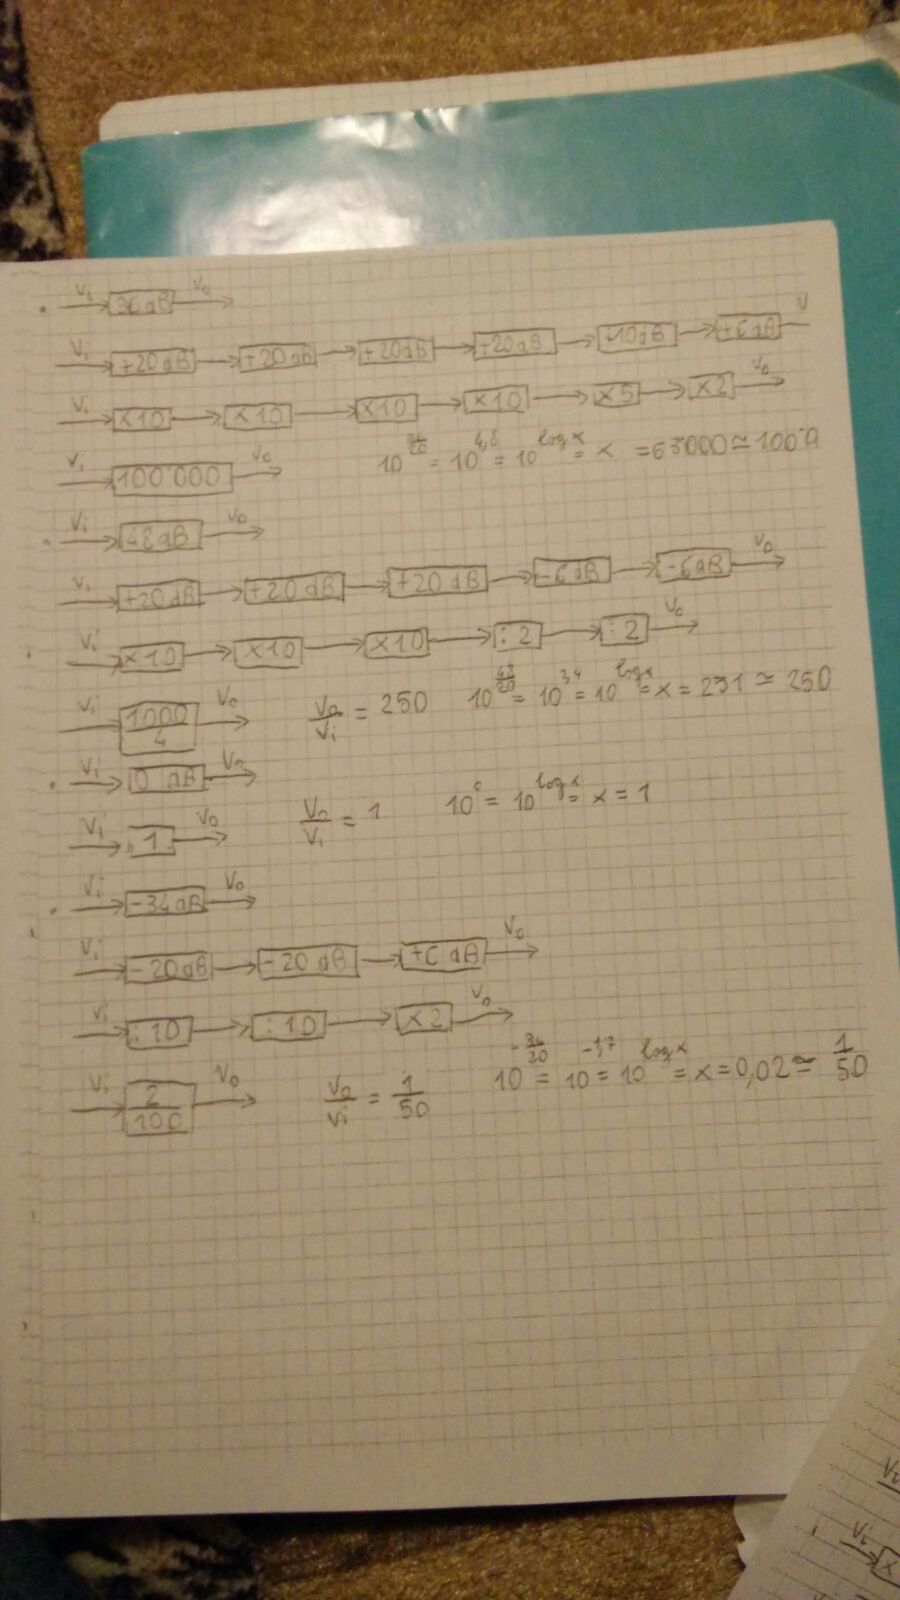 Vi 36dB Vo
Vi +20dB +20dB +20dB +20dB -10dB +6dB V
Vi ×10 ×10 ×10 ×10 ×5 ×2 Vo
Vi 100'000 Vo 10 = 10^4,8 = 10^log x = x = 63000 ≃
Vi 48dB Vo
Vi +20dB +20dB +20dB -6dB -6dB Vo
Vi ×10 ×10 ×10 :2 :2 Vo
Vi 1000/4 Vo Vo/Vi = 250 10^48/20 = 10^ = 10^log x = x = 251 ≃ 250
Vi 0 dB Vo
Vi 1 Vo Vo/Vi = 1 10^0 = 10^log x = x = 1
Vi -34dB Vo
Vi -20dB -20dB +6dB Vo
Vi :10 :10 ×2 Vo
Vi 2/100 Vo Vo/Vi = 1/50 10^-34/20 = 10^-1,7 = 10^log x = x = 0,02 ≃ 1/50
Vi
Vi ×